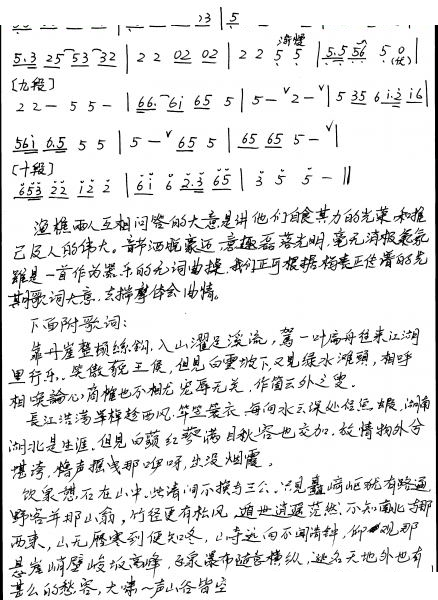 23 | 5
5.3 25 53 32 | 2 2 02 02 | 2 2 5 5 | 5.5 56 5 0
[九段]
2 2 - 5 5 - | 66. 6i 65 5 | 5 - ˅ 2 - ˅ | 5 35 6 i.2 i6 |
56i 6.5 5 5 | 5 - ˅ 65 5 | 65 65 5 - ˅ |
[十段]
653 22 i2 2 | 6 i 6 2.3 65 | 3 5 5 - ‖
渔樵两人互相问答的大意是讲他们自食其力的光荣和推
己及人的伟大。音节洒脱豪迈 意趣磊落光明,毫无消极气氛
虽是一首作为器乐的无词曲操,我们正可根据杨表正传谱的先
期歌词大意,去揣摩体会曲情。
下面附歌词:
靠舟崖整顿丝钩,入山濯足溪流,驾一叶扁舟往来江湖
里行乐。笑傲 王侯,但见白云坡下,又见绿水滩头,相呼
相唤论心商榷也不相尤 宠辱无关,作箇云外之叟。
長江浩荡举棹趁西风,竿笠蓑衣,每向水云深处任鱼蝦,湖南
湖北是生涯,但见白蘋红蓼满目秋容也交加,放情物外分
堪夸,棹声摇曳那咿呀,出没烟霞。
饮泉憩石在山中,此清闲不换与三公,只见 崎岖犹有路通
野客并那山翁,竹径更有松风,遁世逍遥茫然,不知南北与那
西東,山无历寒到便知冬,山寺远向不闻清钟,仰观那
悬崖峭壁峻拔高峰,飞泉瀑布随意横纵,这名天地外也有
甚么的愁容,大啸一声山谷皆空